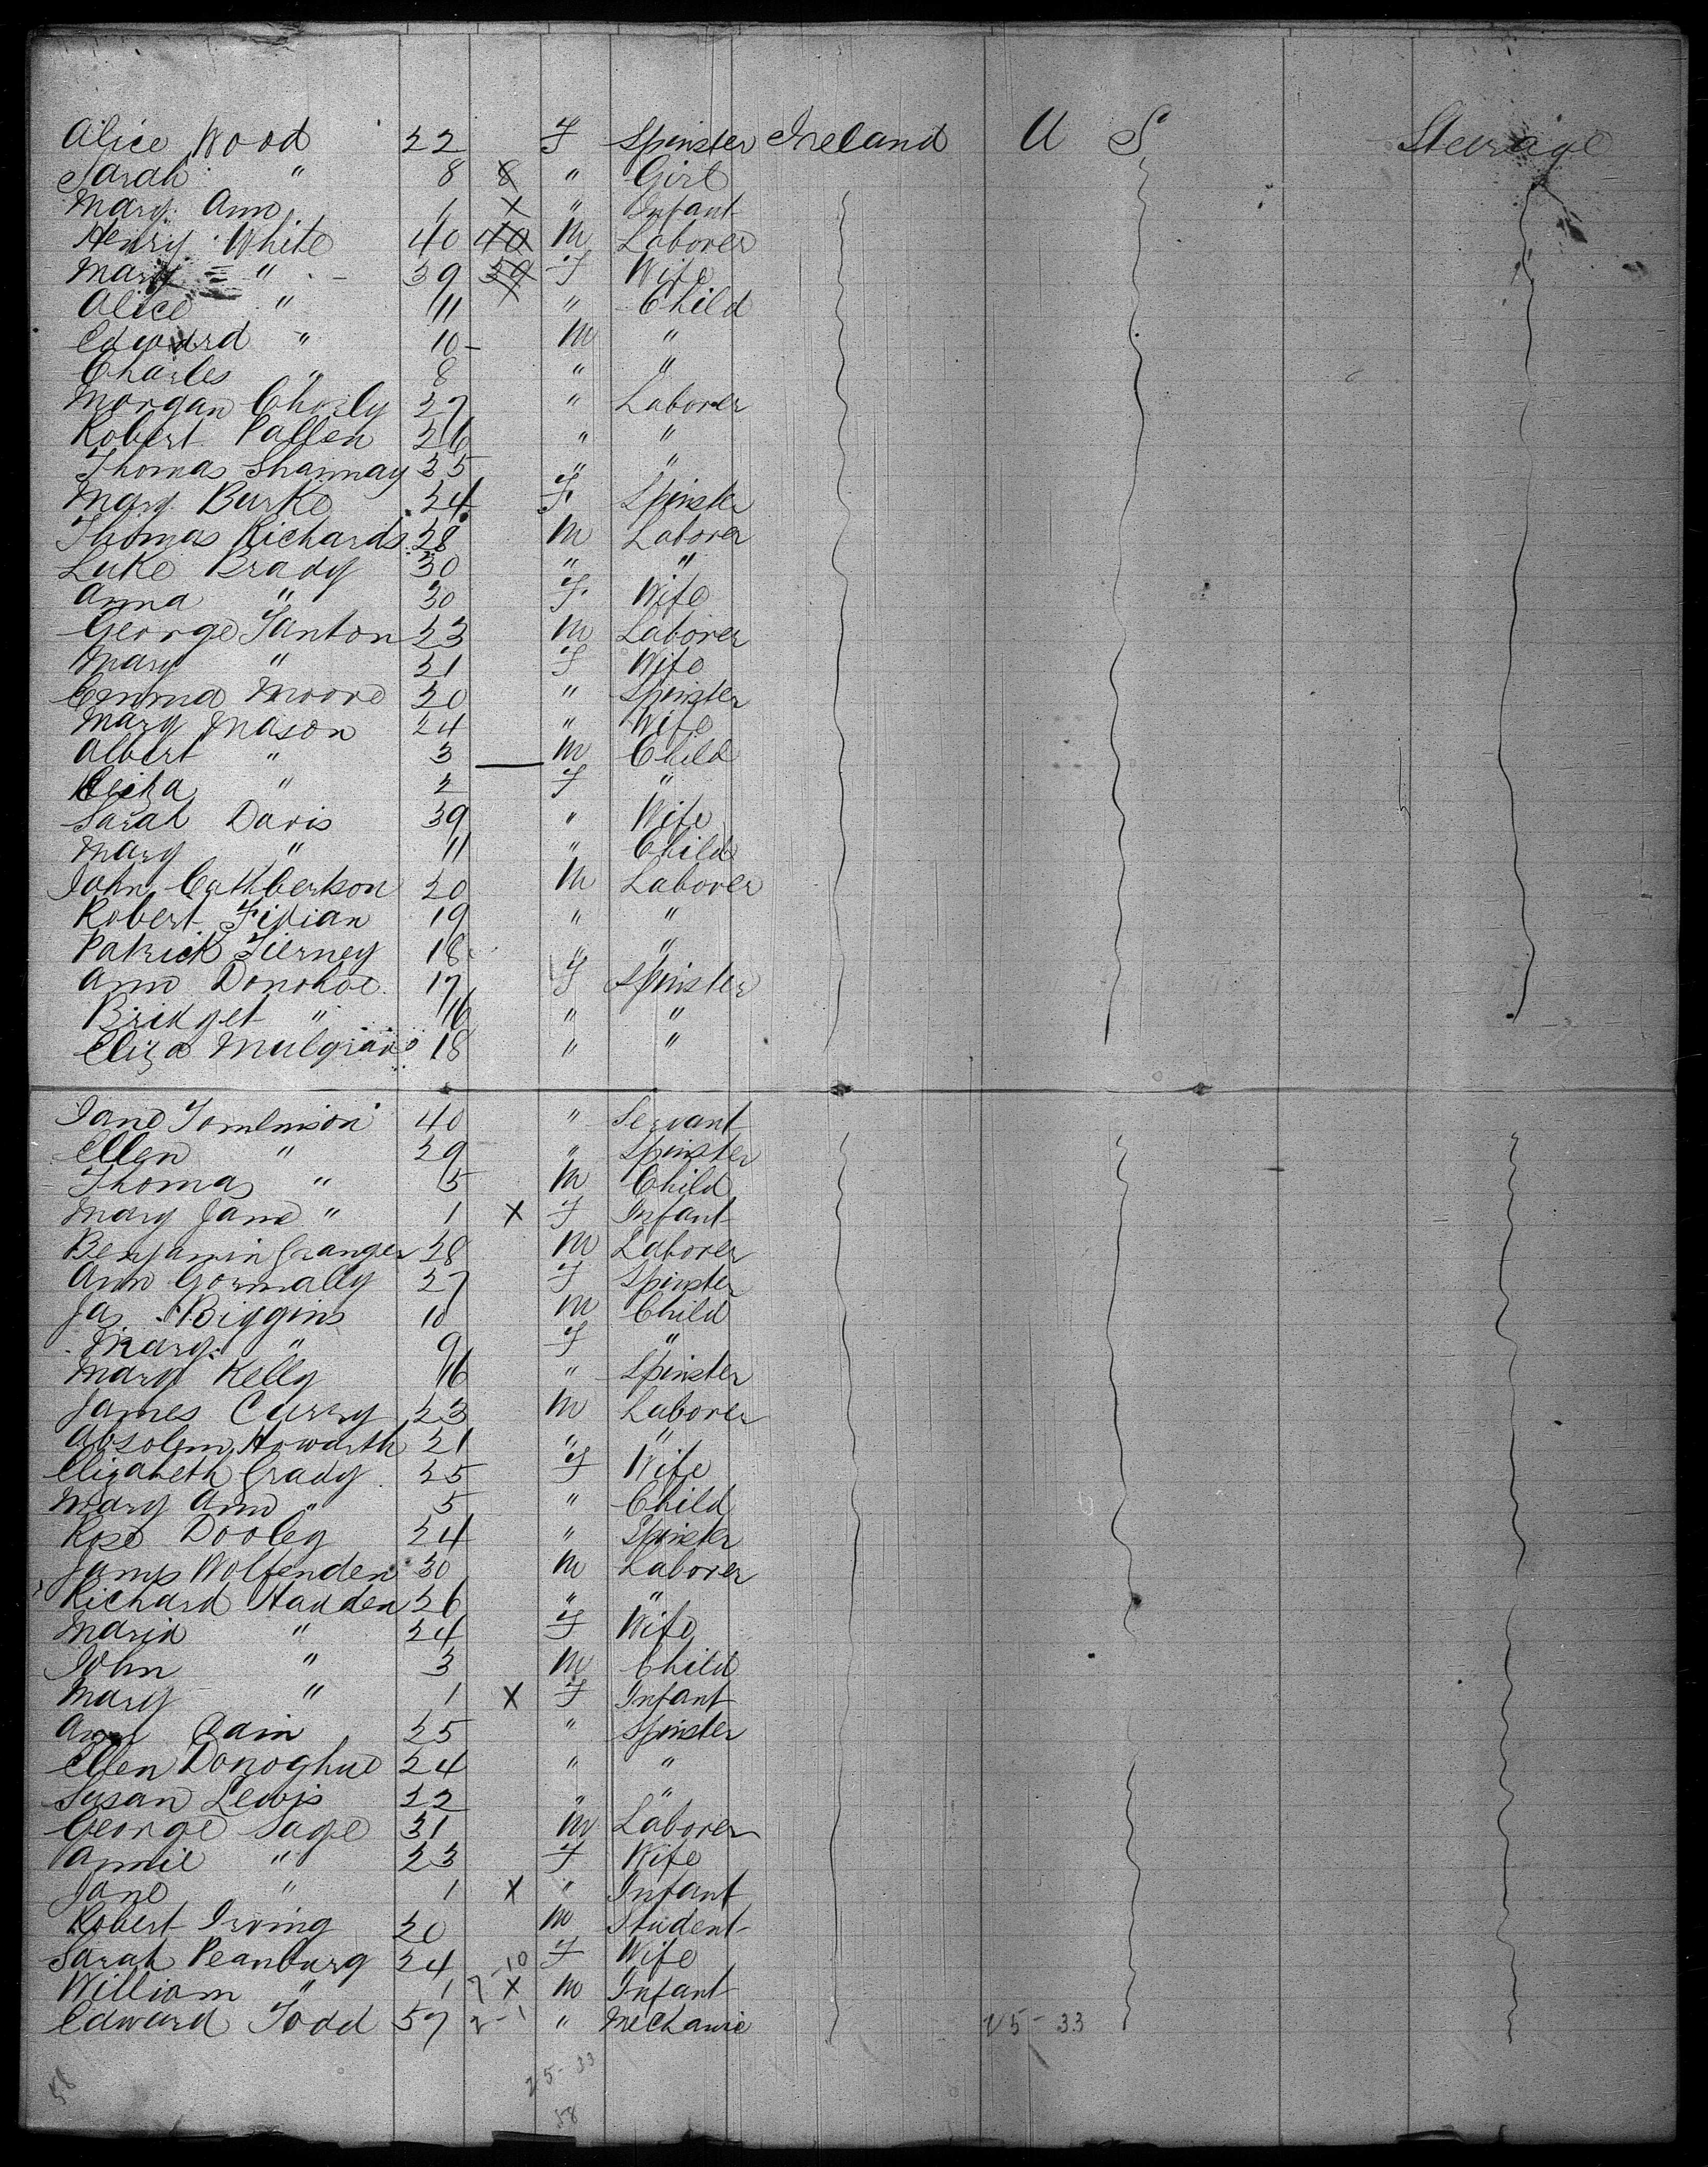 Alice Wood 22 F Spinster Ireland U S. Steerage
Sarah " 8 8 " Girl
Mary Ann 1 X " Infant
Henry White 40 40 M Laborer
Mary " 39 39 F Wife
Alice " 11 " Child
Edward " 10 M "
Charles " 8 " "
Morgan 27 " Laborer
Robert Pallen 26 " "
Thomas Shannay 25 " "
Mary Burke 24 F Spinster
Thomas Richards 28 M Laborer
Luke Brady 30 " "
Anna " 30 F Wife
George Tanton 23 M Laborer
Mary " 21 F Wife
Emma Moore 20 " Spinster
Mary Mason 24 " Wife
Albert " 3 M Child
" 2 F "
Sarah Davis 39 " Wife
Mary " 11 " Child
John Cathberkson 20 M Laborer
Robert 19 " "
Patrick Tierney 18 " "
Ann Donohoe 17 F Spinster
Bridget " 16 " "
Eliza 18 " "
Jane Tomlinson 40 " Servant
Ellen " 29 " Spinster
Thomas " 5 M Child
Mary Jane " 1 X F Infant
Benjamin Granger 28 M Laborer
Ann Gormally 27 F Spinster
Jas Biggins 10 M Child
Mary " 9 F "
Mary Kelly 16 " Spinster
James Curry 23 M Laborer
Absolem Howarth 21 " "
Elizabeth Grady 25 F Wife
Mary Ann " 5 " Child
Rose Dooley 24 " Spinster
James Wolfenden 30 M Laborer
Richard Hadden 26 " "
Maria " 24 F Wife
John " 3 M Child
Mary " 1 X F Infant
Ann Cain 25 " Spinster
Ellen Donoghue 24 " "
Susan Lewis 22 " "
George Sage 31 M Laborer
Annie " 23 F Wife
Jane " 1 X " Infant
Robert Irving 20 M Student
Sarah Peanburg 24 10 F Wife
William " 1 X M Infant
Edward Todd 57 2-1 " Mechanic 25-33
58 25-33
58